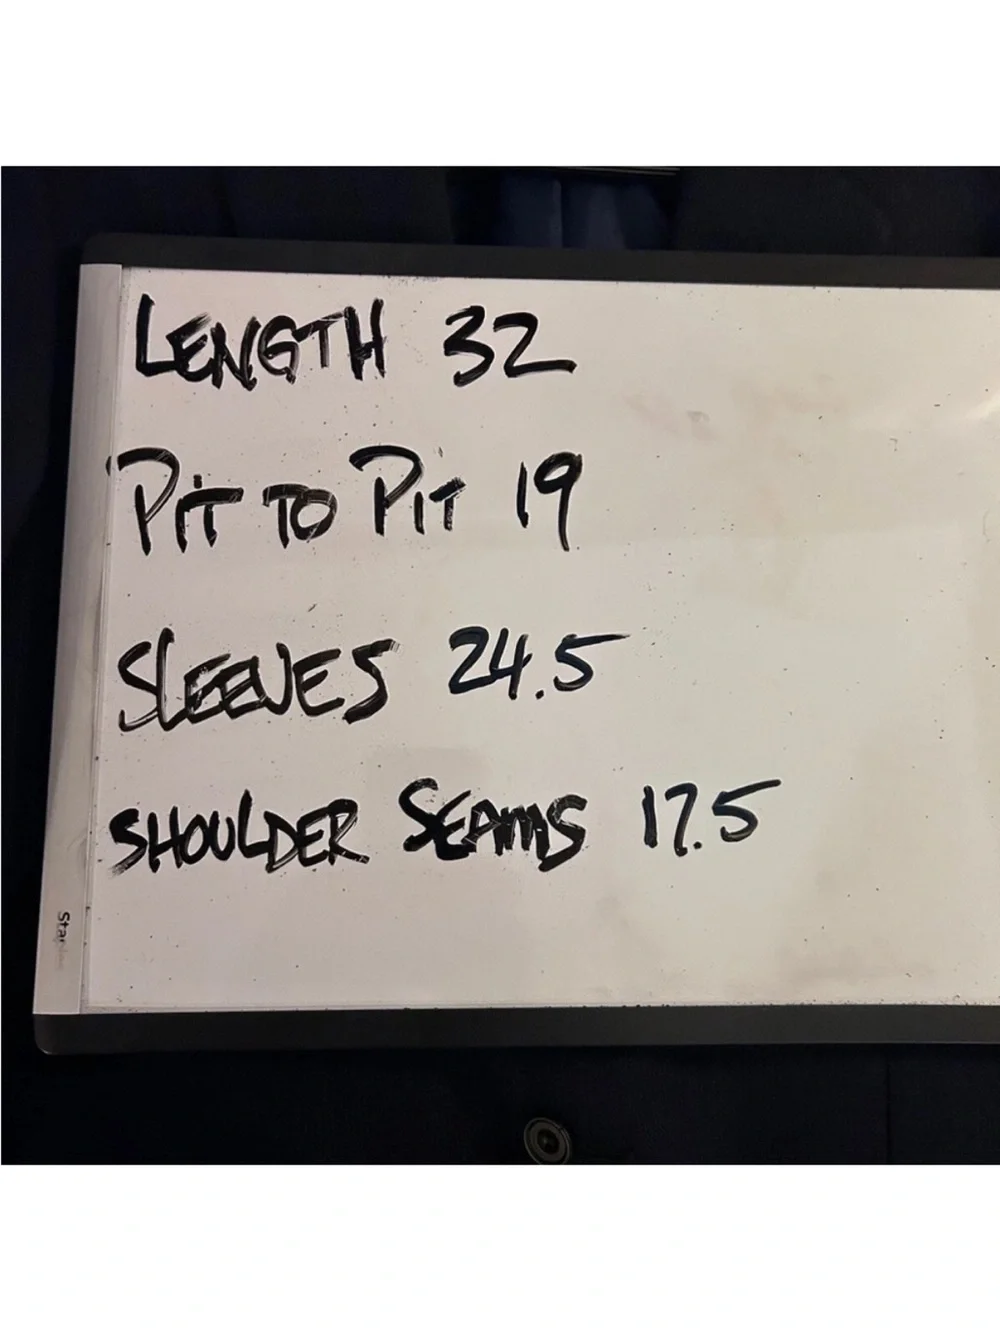 LENGTH 32
PIT TO PIT 19
SLEEVES 24.5
SHOULDER SEAMS 17.5